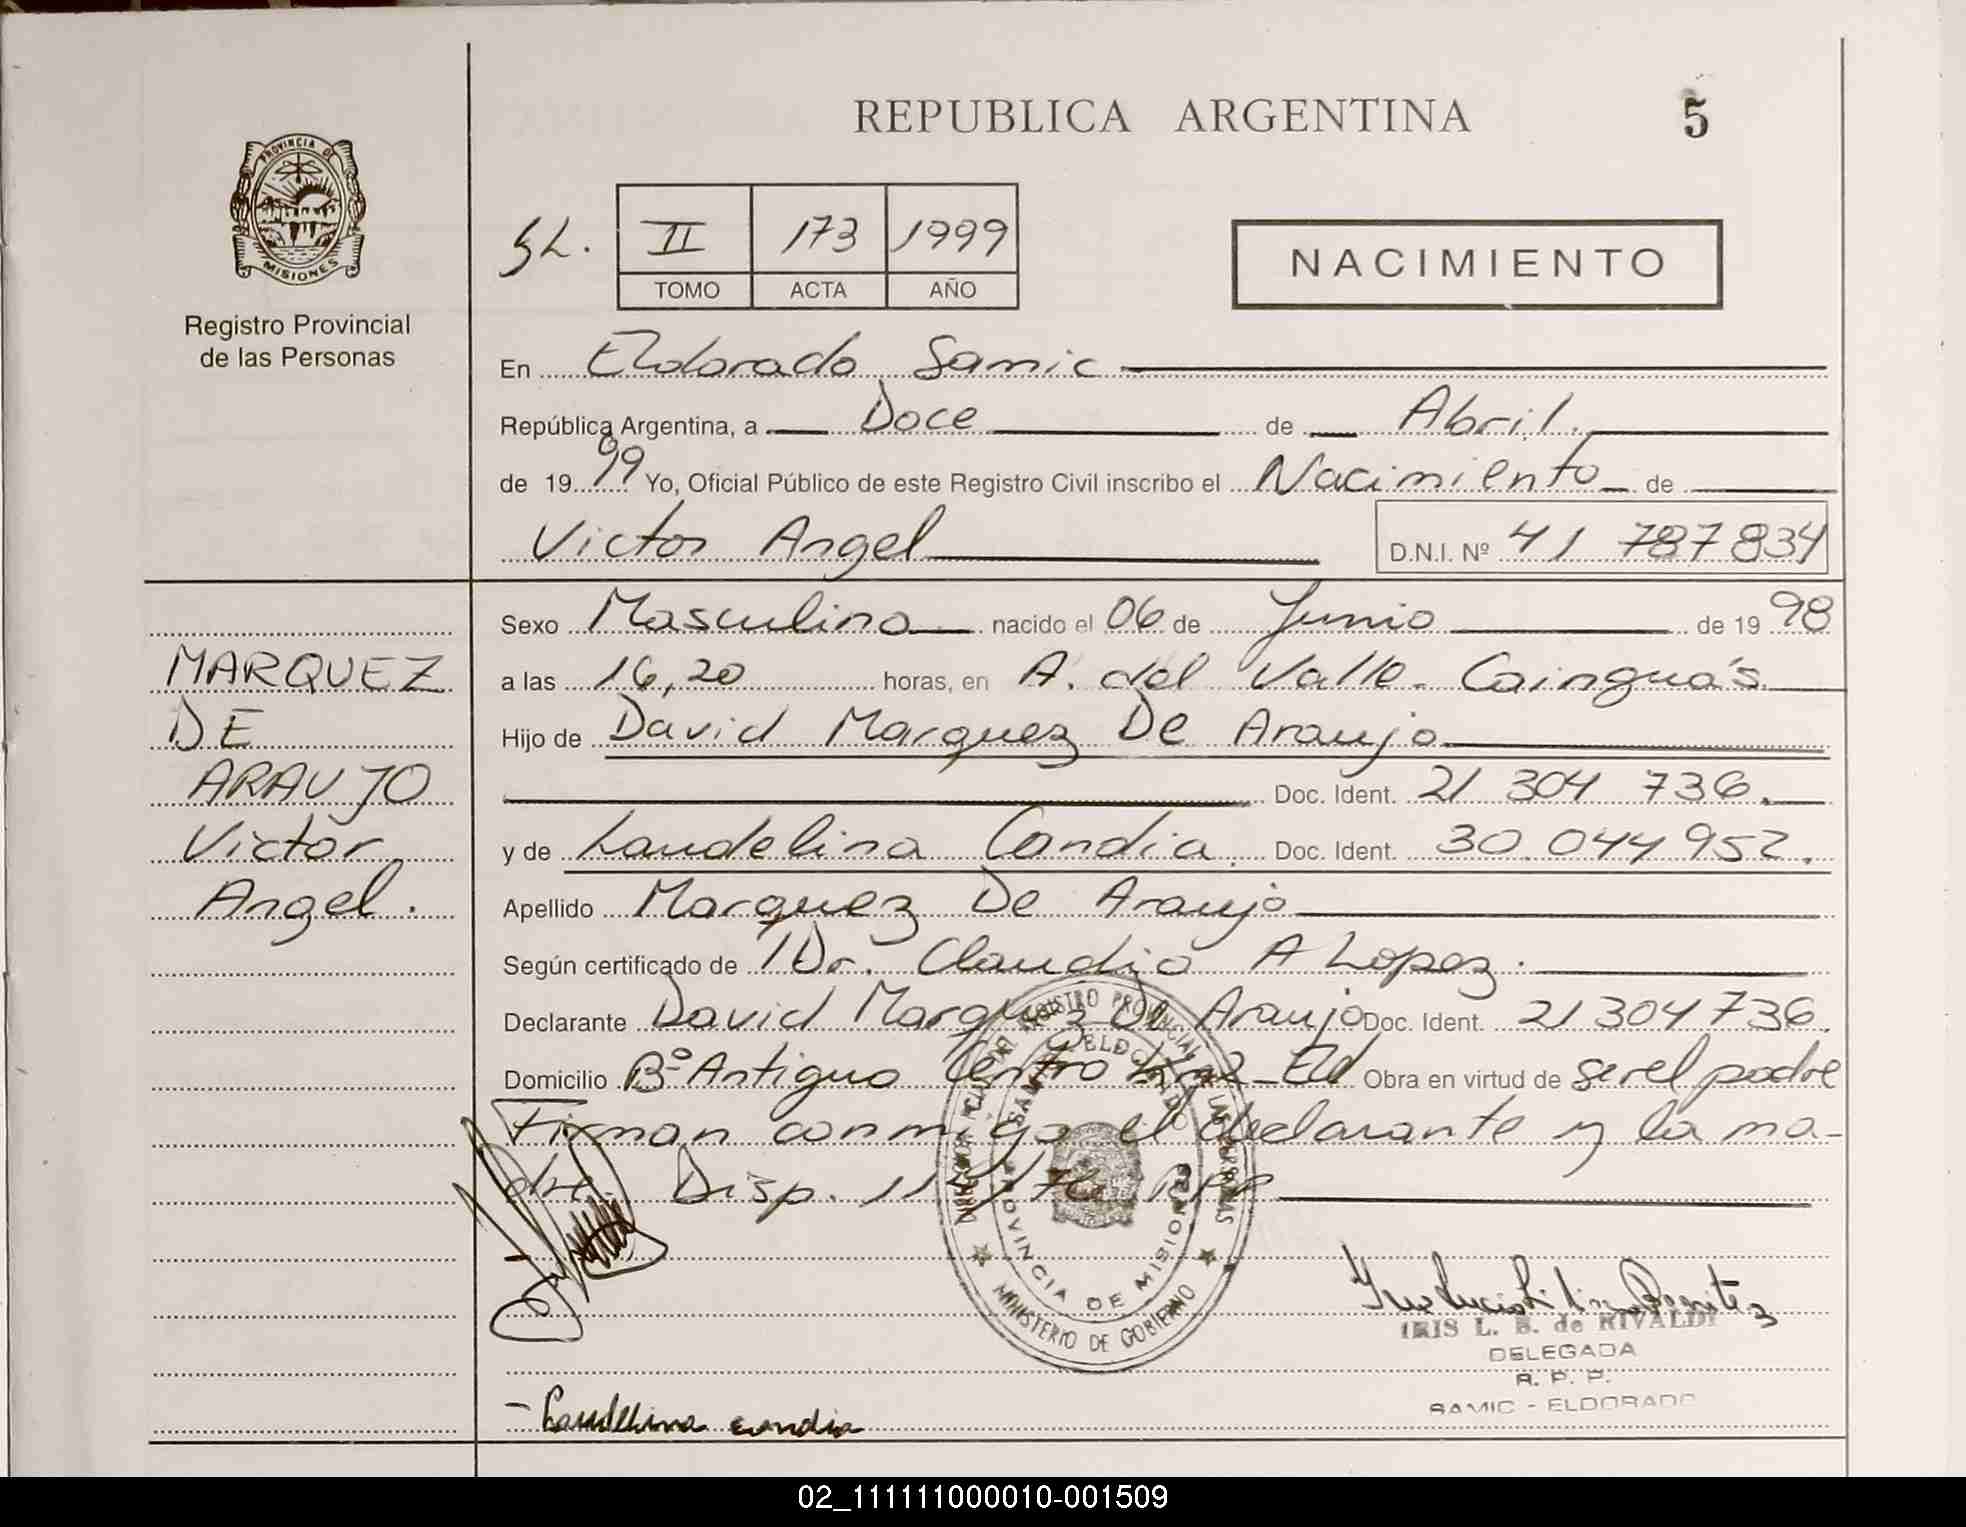 REPUBLICA ARGENTINA
5
PROVINCIA DE
MISIONES
Registro Provincial
de las Personas
II 173 1999
TOMO ACTA AÑO
NACIMIENTO
En Eldorado Samic
República Argentina, a Doce de Abril.
de 19 99 Yo, Oficial Público de este Registro Civil inscribo el Nacimiento de
Victor Angel D.N.I. Nº 41 787 834
MARQUEZ
DE
ARAUJO
Victor
Angel.
Sexo Masculino nacido el 06 de Junio de 19 98
a las 16,20 horas, en A. del Valle - Cainguás
Hijo de David Marquez De Araujo
Doc. Ident. 21 304 736.
y de Laudelina Candia. Doc. Ident. 30.044 952.
Apellido Marquez De Araujo
Según certificado de Dr. Claudio A Lopez.
Declarante David Marquez De Araujo Doc. Ident. 21 304 736.
Domicilio Bº Antiguo Centro Km2 - Eld Obra en virtud de ser el padre
Firman conmigo el declarante y la ma-
dre. Disp. RPP
REGISTRO PROVINCIAL DE LAS PERSONAS
MINISTERIO DE GOBIERNO
SAMIC ELDORADO
PROVINCIA DE MISIONES
IRIS L. B. de RIVALDI
DELEGADA
R. P. P.
SAMIC - ELDORADO
- Laudelina candia
02_111111000010-001509